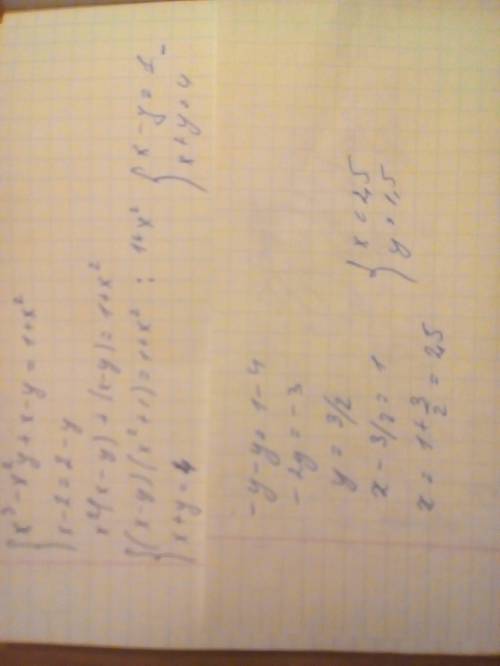 { x³ - x²y + x - y = 1 + x²
x - 2 = 2 - y
x²(x - y) + (x - y) = 1 + x²
{ (x - y)(x² + 1) = 1 + x² : 1 + x²
x + y = 4
{ x - y = 1 -
x + y = 4
- y - y = 1 - 4
- 2y = - 3
y = 3/2
x - 3/2 = 1
x = 1 + 3/2 = 2,5
{ x = 2,5
y = 1,5